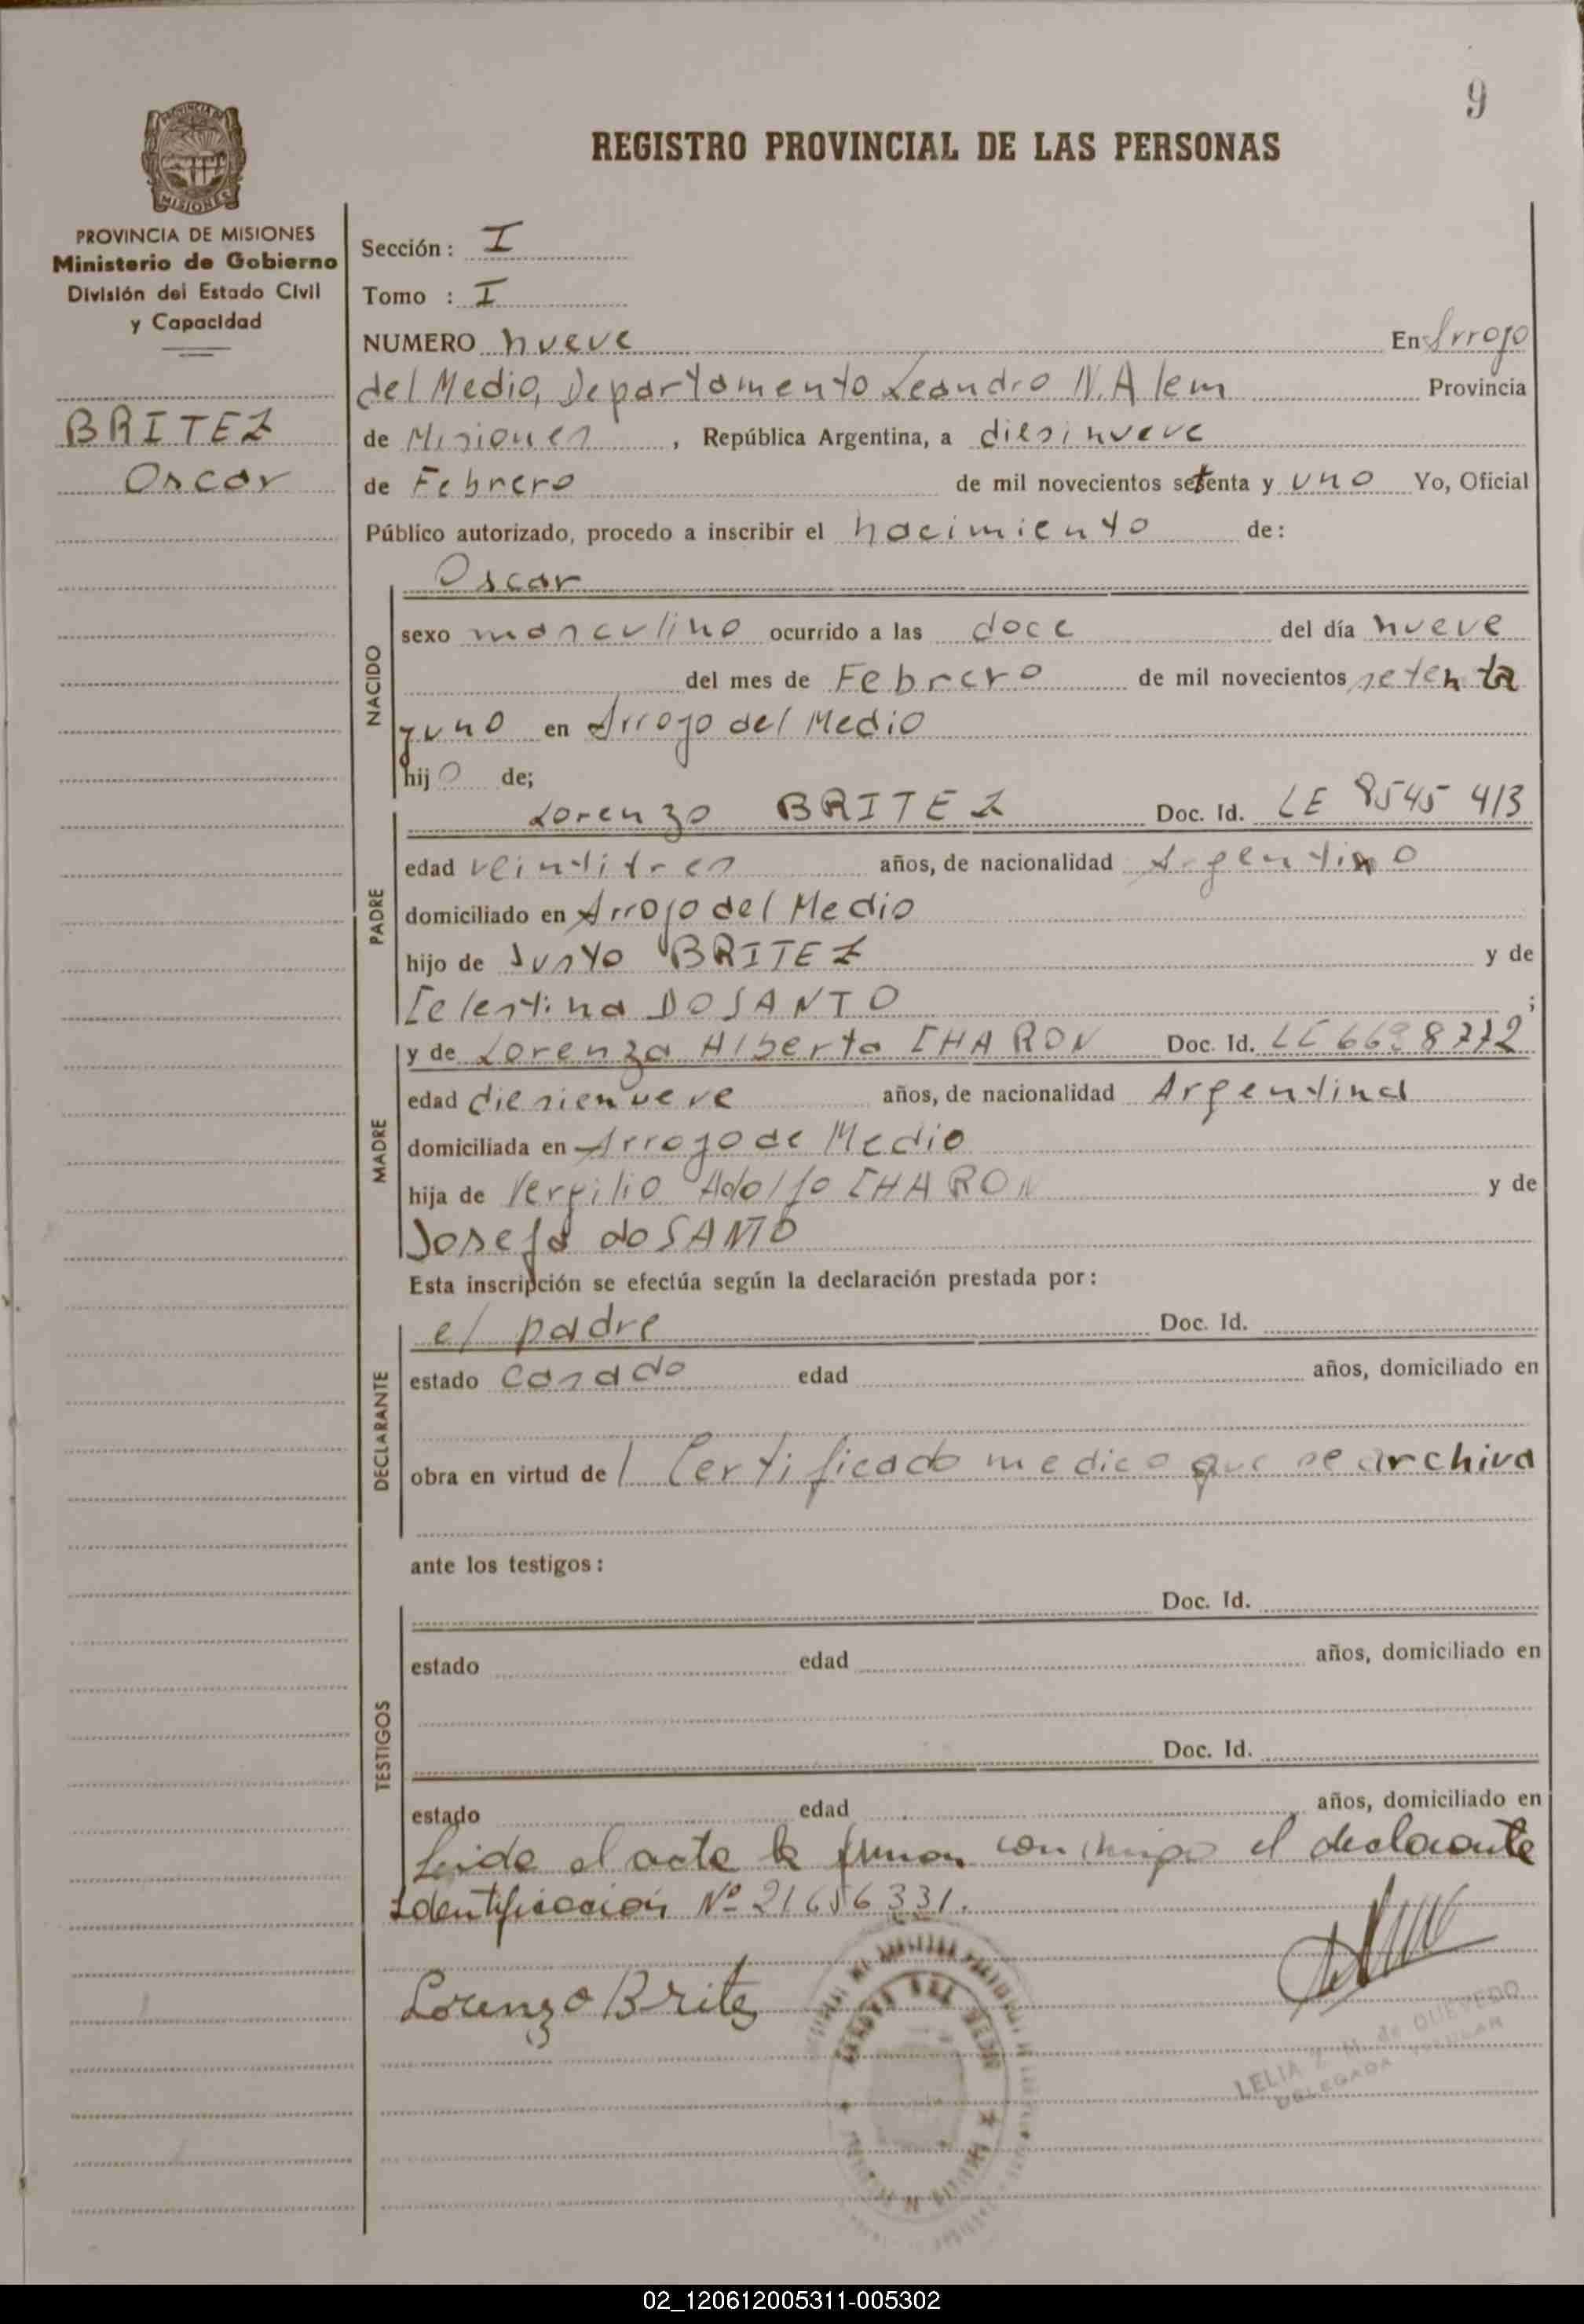 9
REGISTRO PROVINCIAL DE LAS PERSONAS
PROVINCIA DE
MISIONES
PROVINCIA DE MISIONES
Ministerio de Gobierno
División del Estado Civil
y Capacidad
BRITEZ
Oscar
Sección: I
Tomo : I
NUMERO nueve En Arroyo
del Medio, Departamento Leandro N. Alem Provincia
de Misiones, República Argentina, a diesinueve
de Febrero de mil novecientos setenta y uno Yo, Oficial
Público autorizado, procedo a inscribir el nacimiento de:
NACIDO
Oscar
sexo masculino ocurrido a las doce del día nueve
del mes de Febrero de mil novecientos setenta
y uno en Arroyo del Medio
hijo de;
PADRE
Lorenzo BRITEZ Doc. Id. LE 8545 413
edad veintitres años, de nacionalidad Argentino
domiciliado en Arroyo del Medio
hijo de Justo BRITEZ y de
Celestina DOSANTO ;
MADRE
y de Lorenza Alberta CHARON Doc. Id. LC 6698772
edad diesienueve años, de nacionalidad Argentina
domiciliada en Arroyo de Medio
hija de Vergilio Adolfo CHARON y de
Josefa do SANTO
Esta inscripción se efectúa según la declaración prestada por:
DECLARANTE
el padre Doc. Id.
estado Casado edad años, domiciliado en
obra en virtud de l Certificado medico que se archiva
ante los testigos:
TESTIGOS
Doc. Id.
estado edad años, domiciliado en
Doc. Id.
estado edad años, domiciliado en
Leida el acta la firman conmigo el declarante
Identificación Nº 21656331.
Lorenzo Britez
LELIA Z. M. de QUEVEDO
DELEGADA TITULAR
02_120612005311-005302